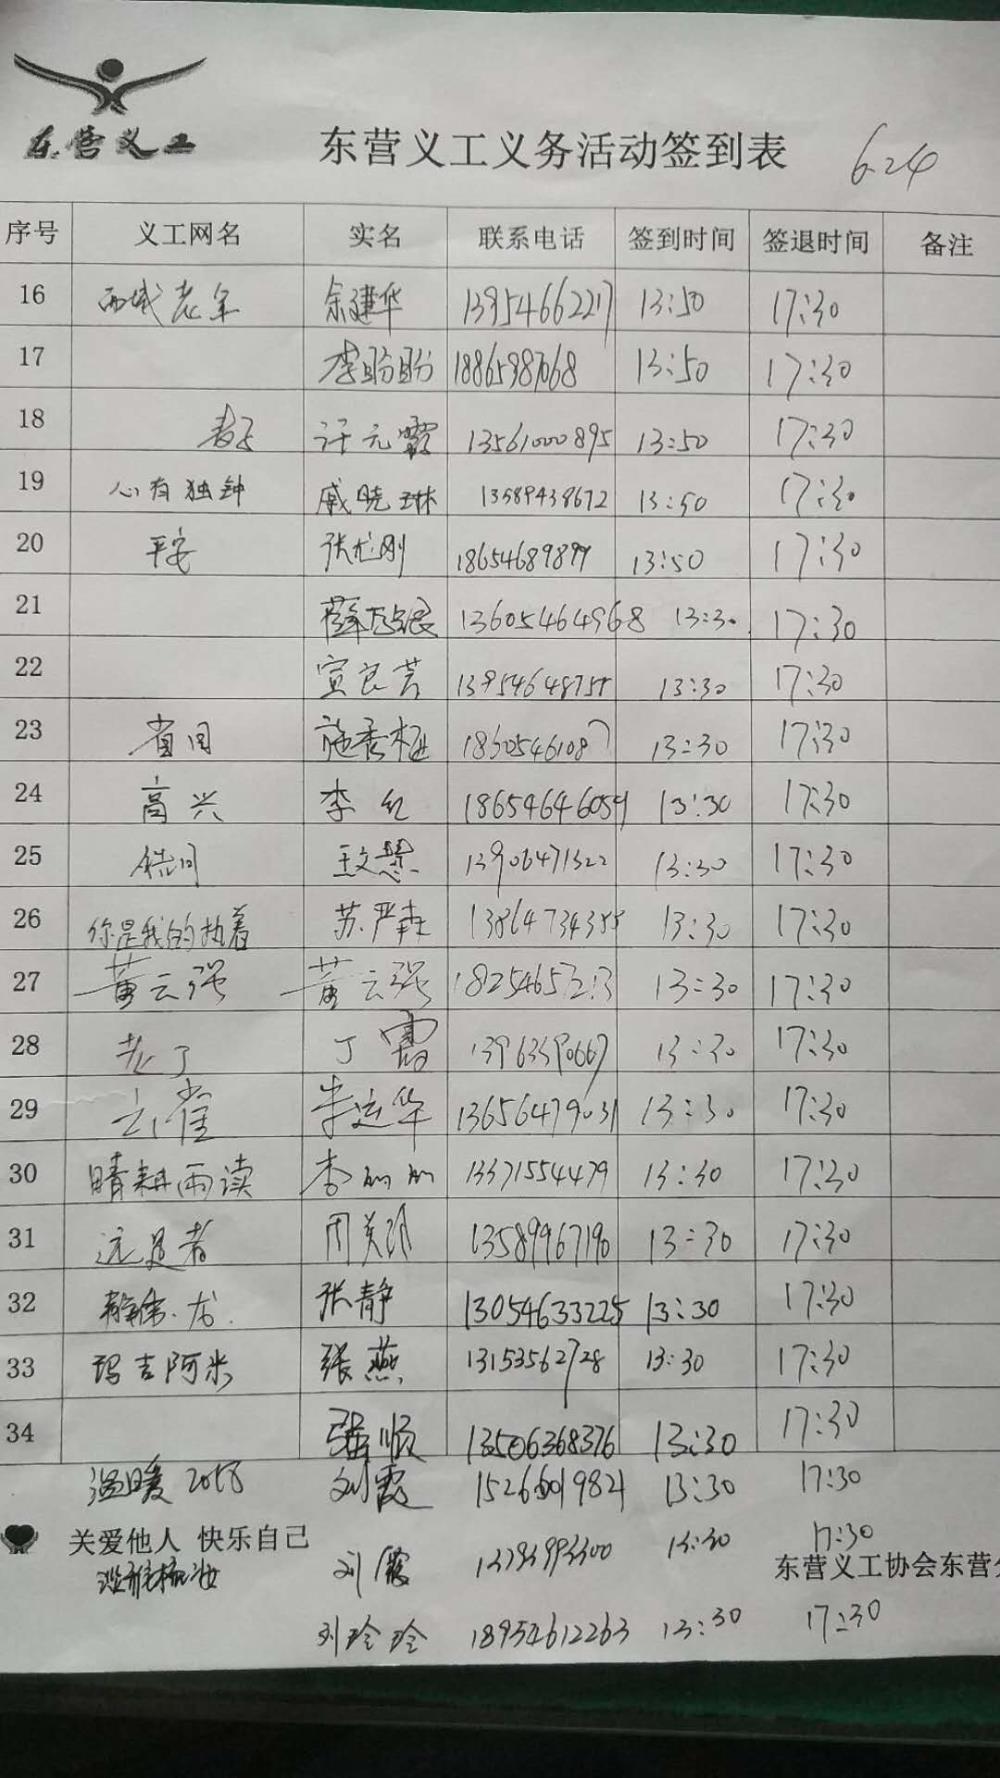 东营义工
东营义工义务活动签到表 6.24
序号 义工网名 实名 联系电话 签到时间 签退时间 备注
16 西域老余 余建华 13954662217 13:50 17:30
17 李盼盼 18865987068 13:50 17:30
18 许元霞 13561000895 13:50 17:30
19 心有独钟 戚晓琳 13589438672 13:50 17:30
20 平安 张龙刚 18654689897 13:50 17:30
21 13605464968 13:30 17:30
22 宣良芳 13954648755 13:30 17:30
23 省闰 施秀梅 13:30 17:30
24 高兴 李红 18654646059 13:30 17:30
25 王文慧 13906471322 13:30 17:30
26 你是我的执着 苏严森 13864734355 13:30 17:30
27 黄云强 黄云强 18254657213 13:30 17:30
28 老丁 丁霞 13963590667 13:30 17:30
29 云雀 李延华 13656479031 13:30 17:30
30 晴耕雨读 李丽丽 13371554479 13:30 17:30
31 周美玲 13589967190 13:30 17:30
32 张静 13054633225 13:30 17:30
33 玛吉阿米 张燕 13153562728 13:30 17:30
34 张顺 13506368376 13:30 17:30
温暖2018 刘霞 15266019821 13:30 17:30
关爱他人 快乐自己
刘霞 13793993300 13:30 17:30
东营义工协会东营分
刘玲玲 18954612263 13:30 17:30